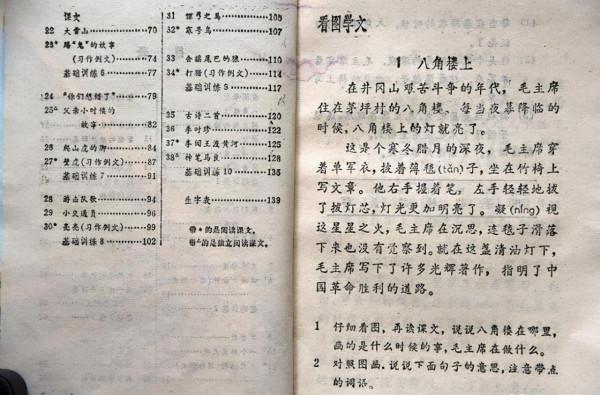 课文
22 大雷山………70
23* 踢“鬼”的故事
(习作例文)………74
基础训练6………77
24 “你们想错了”………79
25△ 父亲小时候的
故事………82
26 爬山虎的脚………84
27* 壁虎(习作例文)………87
基础训练7………91
28 游击队歌………94
29 小交通员………96
30* 亮亮(习作例文)………99
基础训练8………102
31 惊弓之鸟………105
32 寒号鸟………108
33 会摇尾巴的狼………110
34* 打猎(习作例文)………114
基础训练9………117
35 古诗二首………120
36 李时珍………122
37* 李闯王渡黄河………128
38△ 神笔马良………128
基础训练10………135
生字表………139
带*的是阅读课文。
带△的是独立阅读课文。
看图学文
1 八角楼上
在井冈山艰苦斗争的年代，毛主席
住在茅坪村的八角楼。每当夜幕降临的
时候，八角楼上的灯就亮了。
这是个寒冬腊月的深夜，毛主席穿
着单军衣，披着薄毯(tǎn)子，坐在竹椅上
写文章。他右手提着笔，左手轻轻地拨
了拨灯芯，灯光更加明亮了。凝(níng)视
这星星之火，毛主席在沉思，连毯子滑落
下来也没有觉察到。就在这盏清油灯下，
毛主席写下了许多光辉著作，指明了中
国革命胜利的道路。
1 仔细看图，再读课文，说说八角楼在哪里，
画的是什么时候的事，毛主席在做什么。
2 对照图画，说说下面句子的意思，注意带点
的词语。